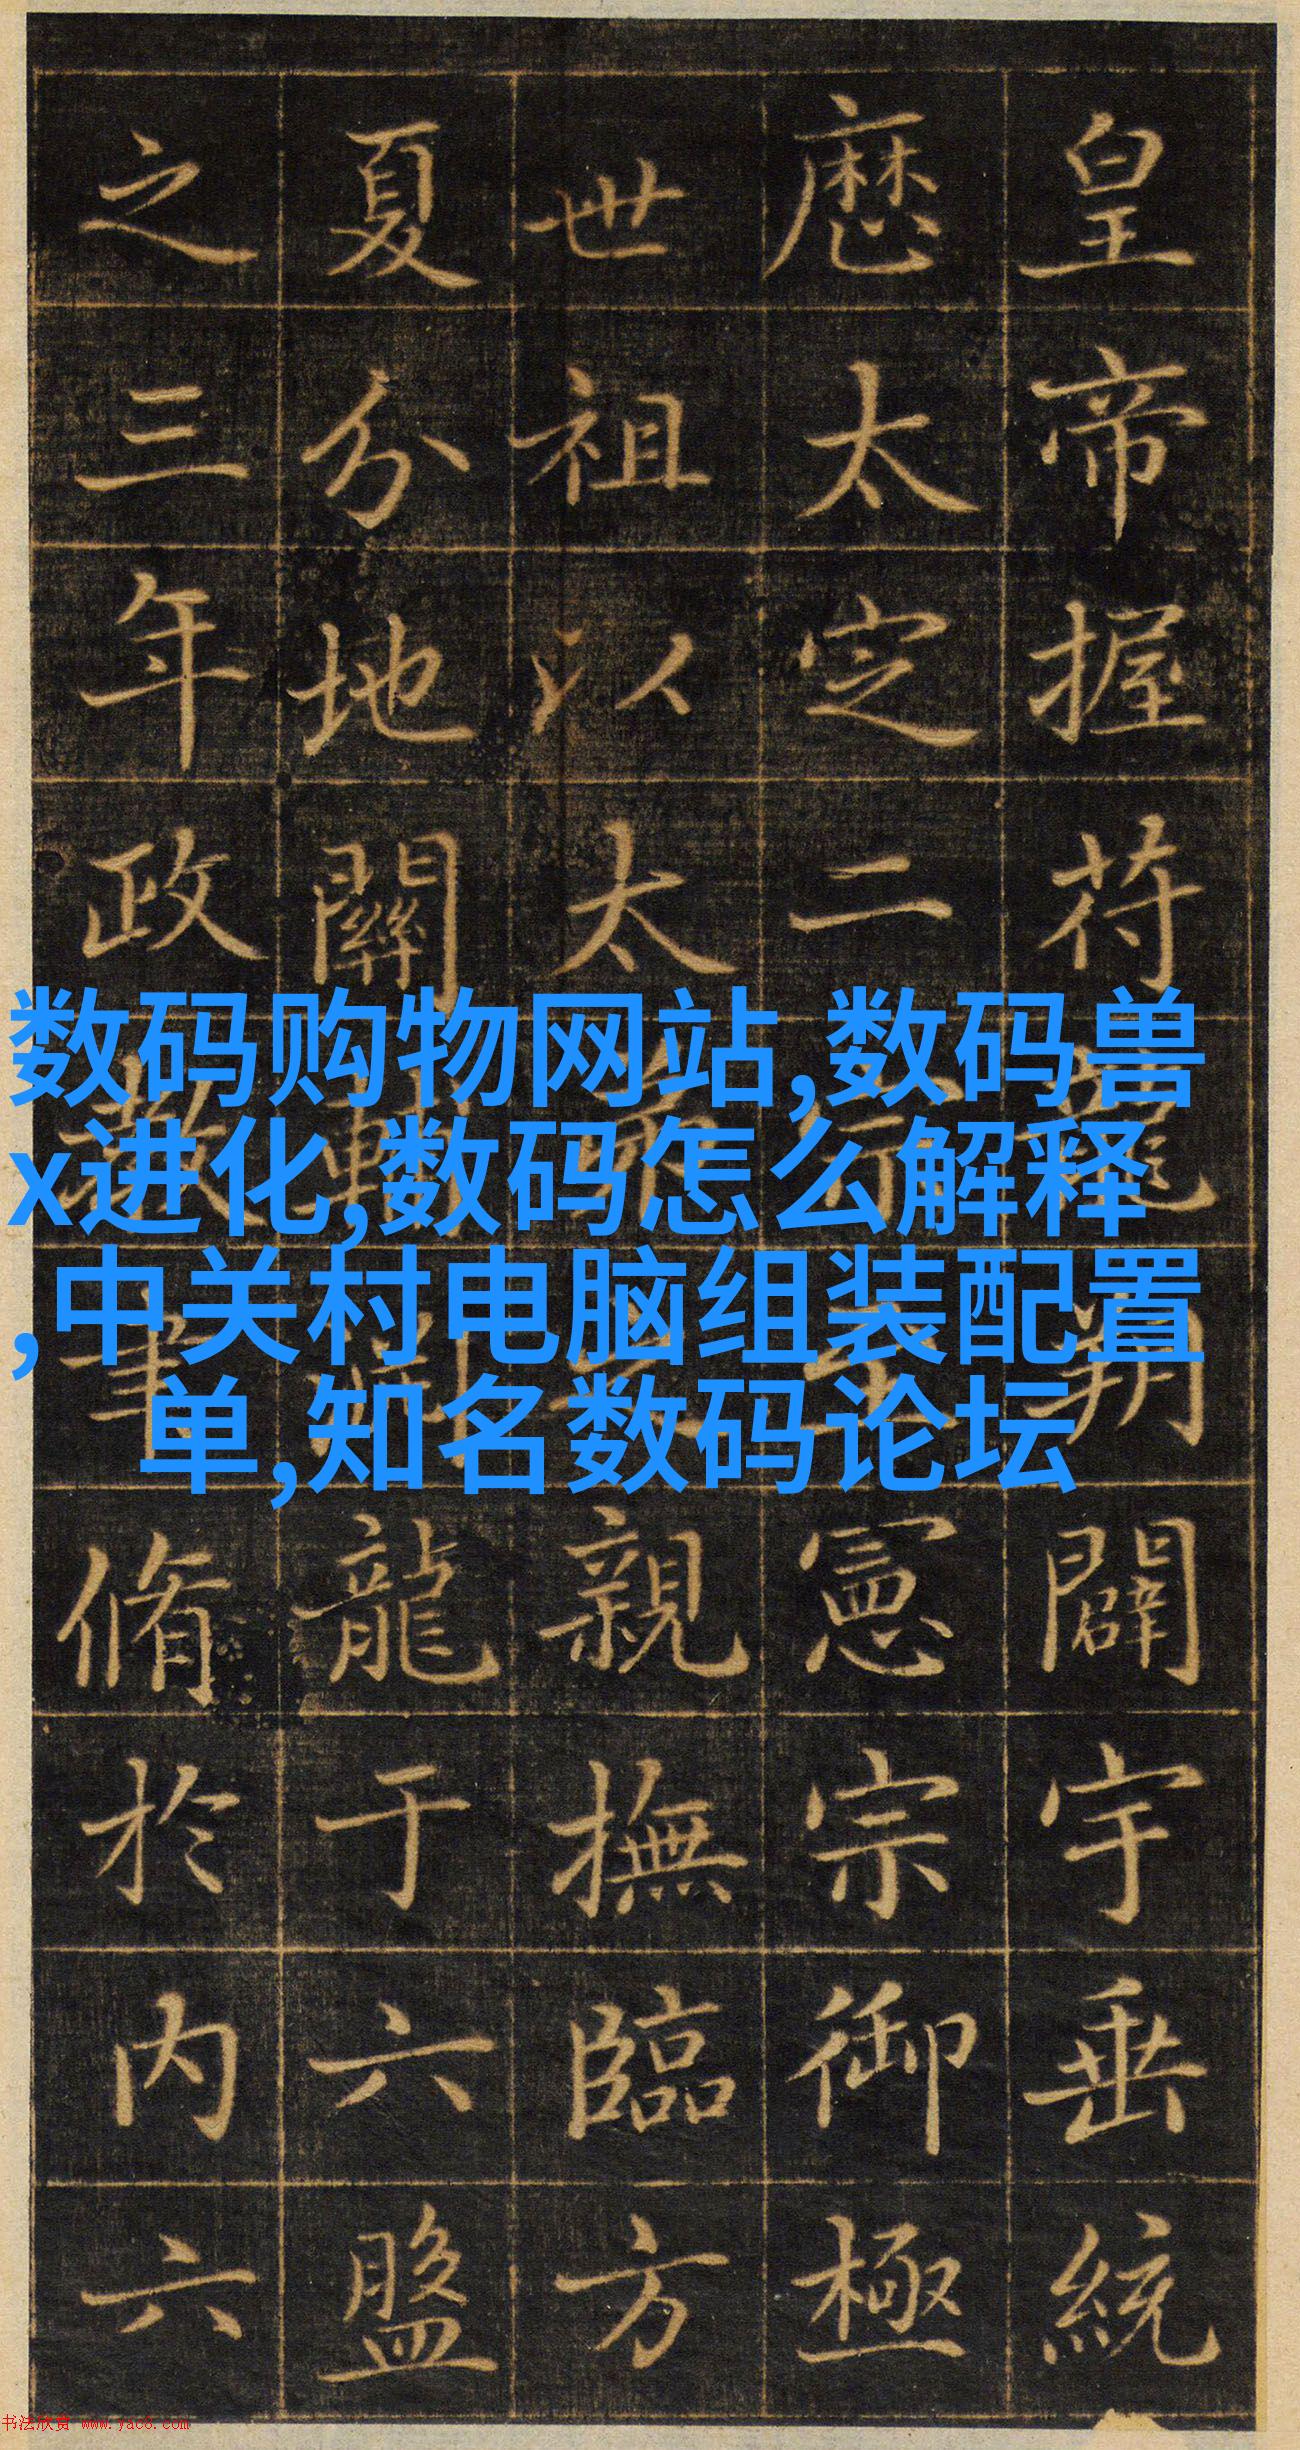 皇帝握苻龍朔闢宇垂統
厯太定二宗至憲宗御極
世祖以太弟之親撫臨方
夏分地關輔開龍于六盤
之三年政教聿脩於内六
数码购物网站,数码兽
x进化,数码怎么解释
,中关村电脑组装配置
单,知名数码论坛
书法欣赏 www.yac8.com